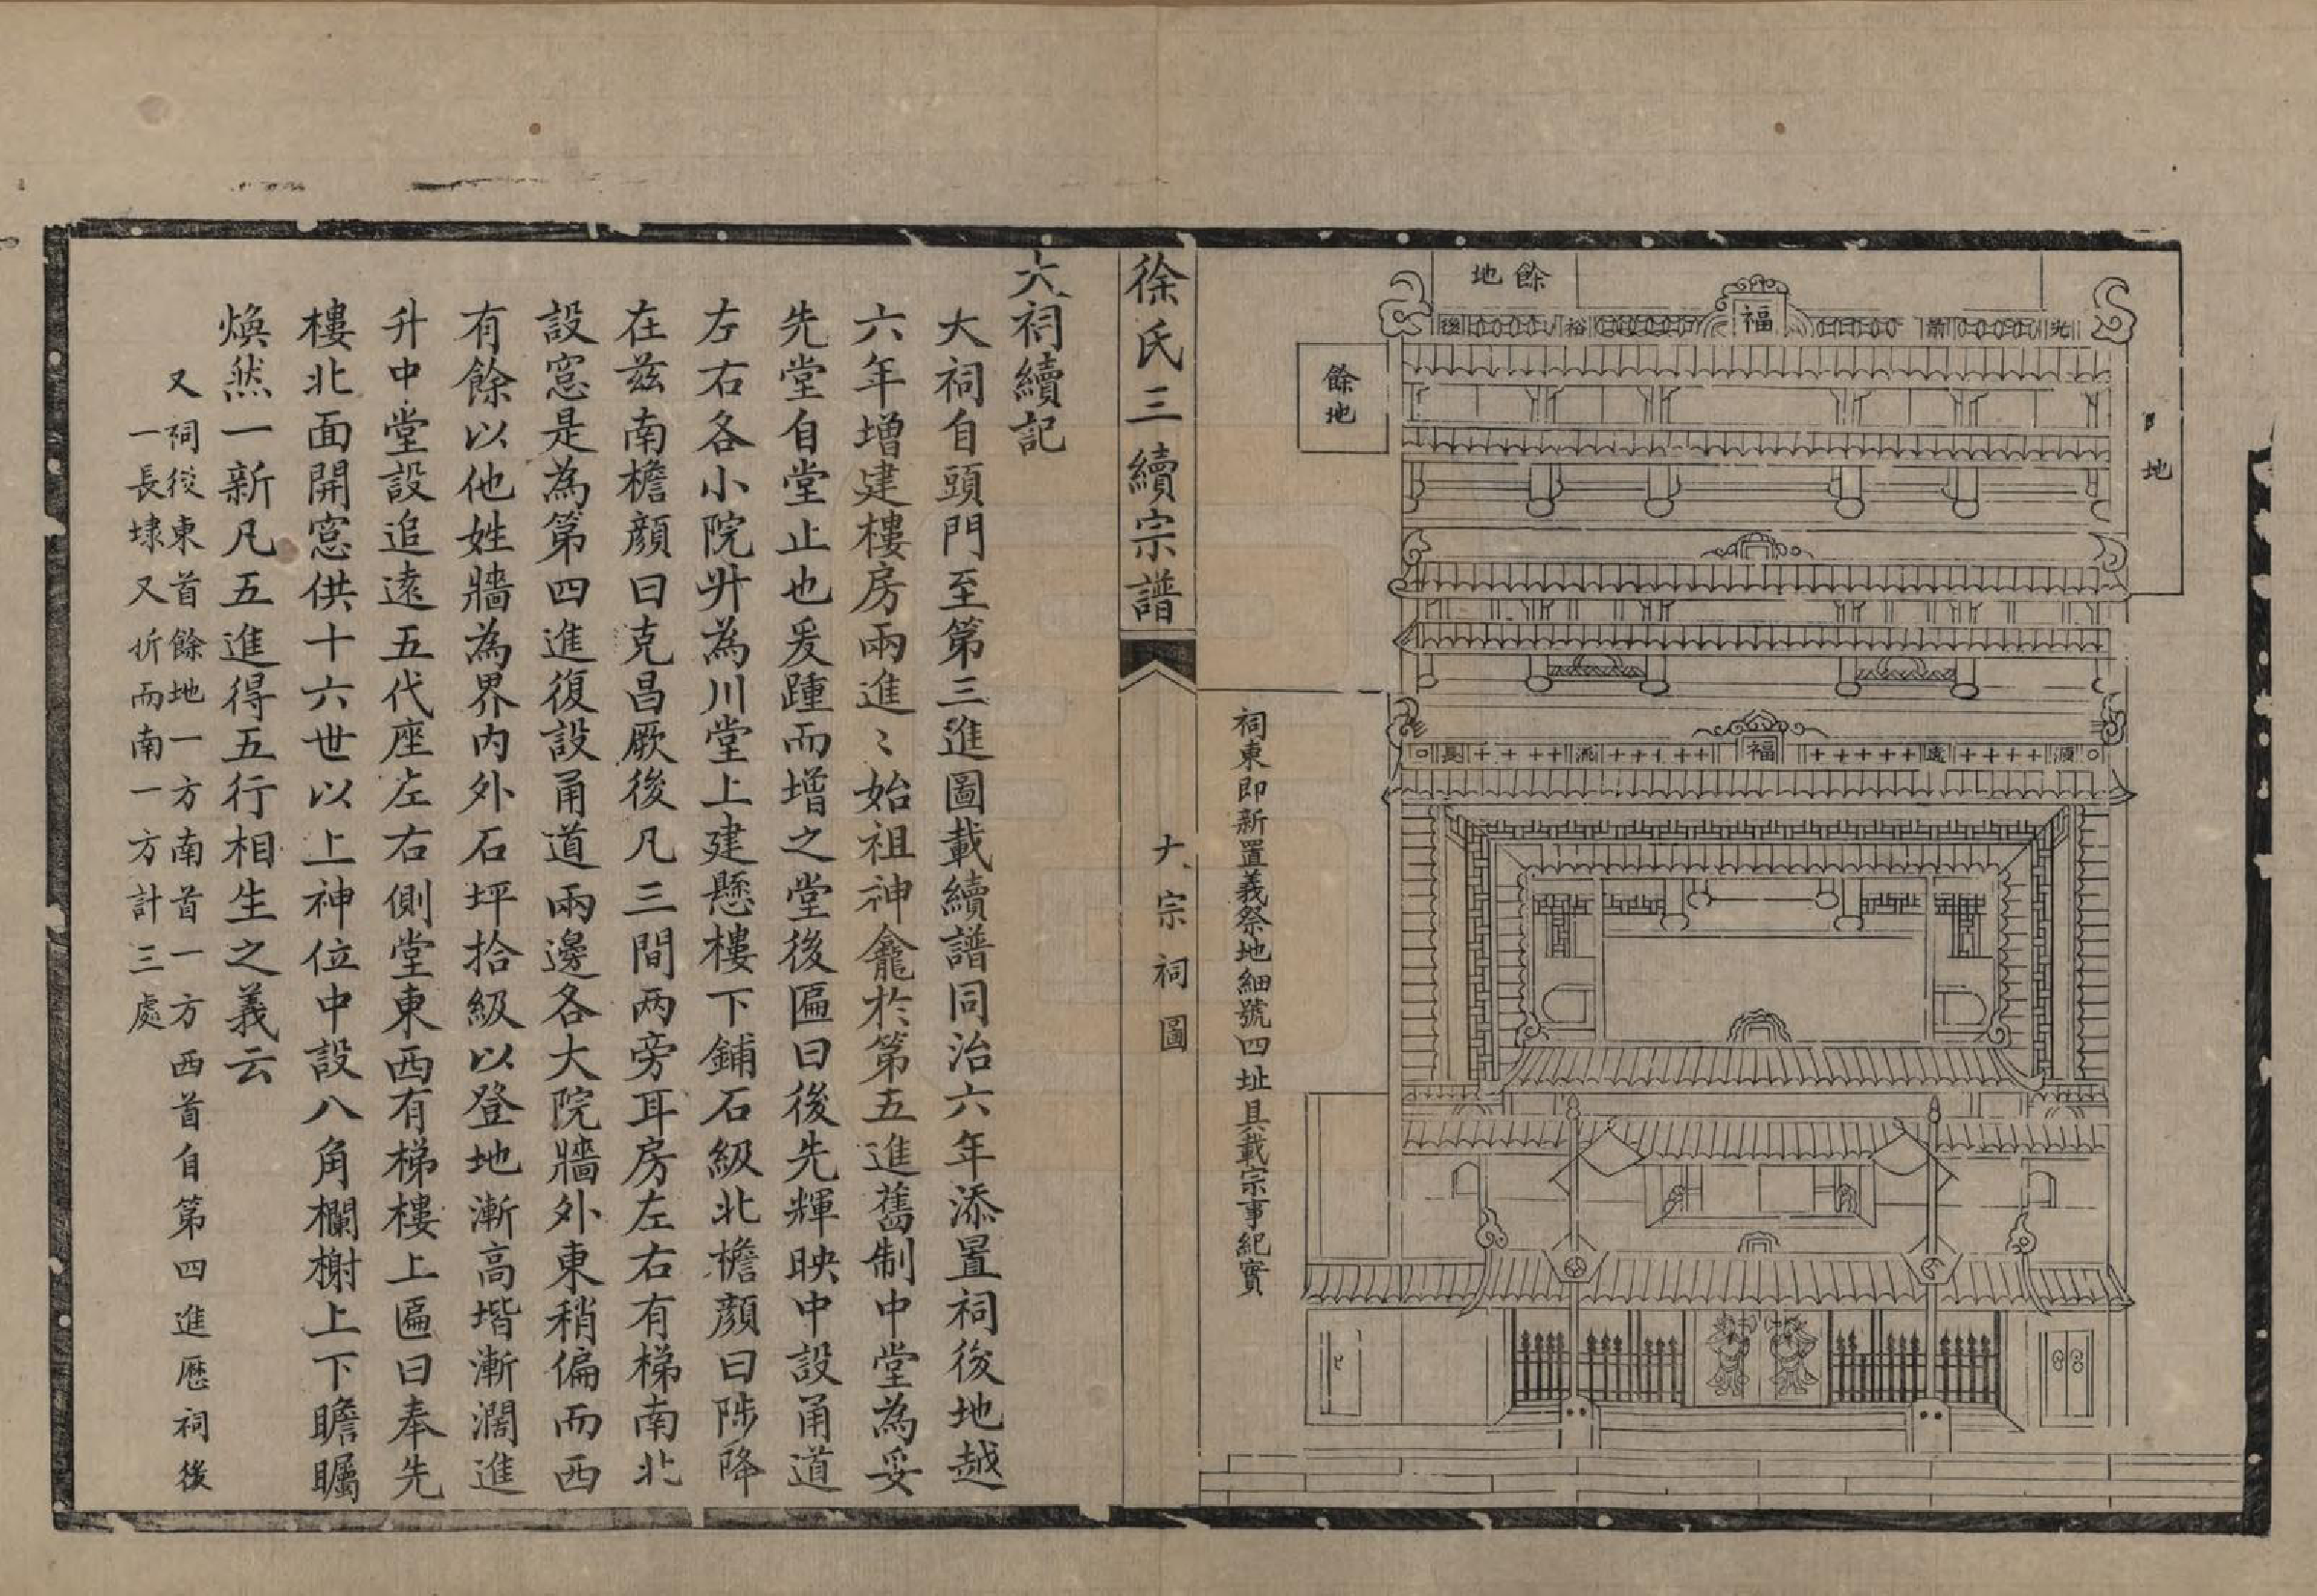 餘地
福
光前裕後
餘地
地
源遠福流長
祠東即新置義祭地細號四址具載宗事紀實
徐氏三續宗譜
大宗祠圖
大祠續記
大祠自頭門至第三進圖載續譜同治六年添置祠後地越
六年增建樓房兩進〻始祖神龕於第五進舊制中堂為妥
先堂自堂止也爰踵而增之堂後匾曰後先輝映中設甬道
左右各小院升為川堂上建懸樓下鋪石級北檐顏曰陟降
在兹南檐顏曰克昌厥後凡三間两旁耳房左右有梯南北
設窓是為第四進復設甬道兩邊各大院牆外東稍偏而西
有餘以他姓牆為界内外石坪拾級以登地漸高堦漸濶進
升中堂設追遠五代座左右側堂東西有梯樓上匾曰奉先
樓北面開窓供十六世以上神位中設八角欄榭上下瞻矚
煥然一新凡五進得五行相生之義云
又祠後東首餘地一方南首一方西首自第四進歷祠後
一長埭又折而南一方計三處